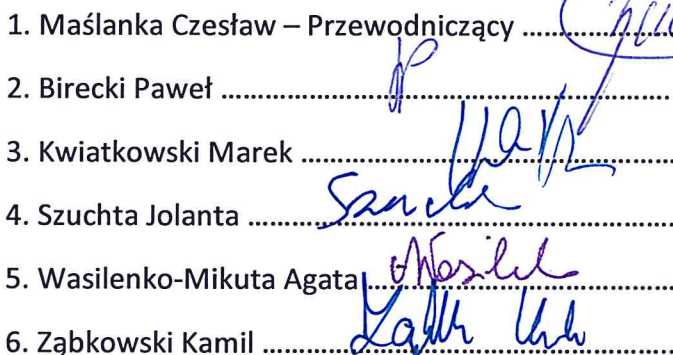 1. Maślanka Czesław – Przewodniczący ....................
2. Birecki Paweł ............................................................
3. Kwiatkowski Marek ..................................................
4. Szuchta Jolanta .........................................................
5. Wasilenko-Mikuta Agata ..........................................
6. Ząbkowski Kamil .......................................................